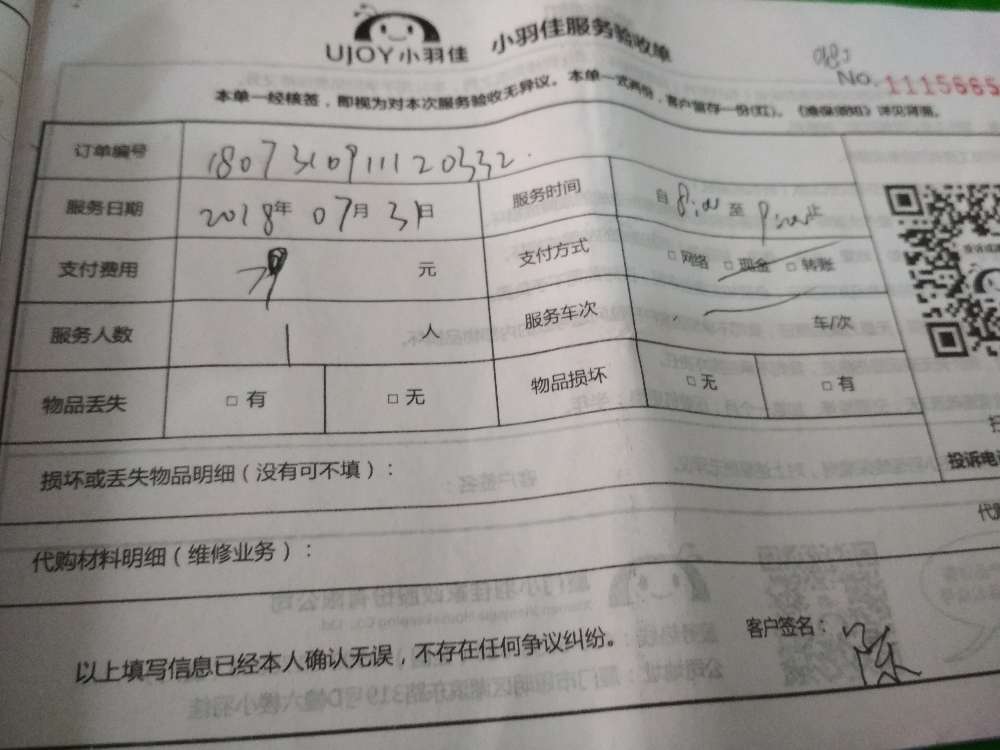 UJOY小羽佳 小羽佳服务验收单
No. 1115665
本单一经核签，即视为对本次服务验收无异议。本单一式两份，客户留存一份(红)。《维保须知》详见背面。
订单编号 18073109111120332
服务日期 2018年 07月 31日 服务时间 自 至 止
支付费用 元 支付方式 □ 网络 □ 现金 □ 转账
服务人数 1 人 服务车次 车/次
物品丢失 □ 有 □ 无 物品损坏 □ 无 □ 有
损坏或丢失物品明细（没有可不填）：
投诉电
代购材料明细（维修业务）：
以上填写信息已经本人确认无误，不存在任何争议纠纷。
客户签名：